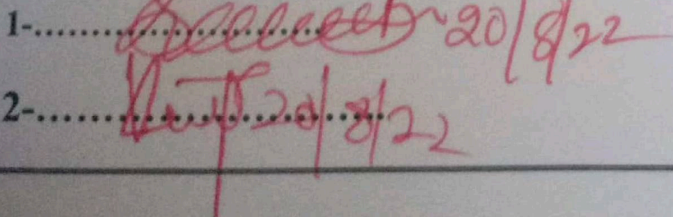 1-.............................. 20/8/22
2-.............................. 20/8/22